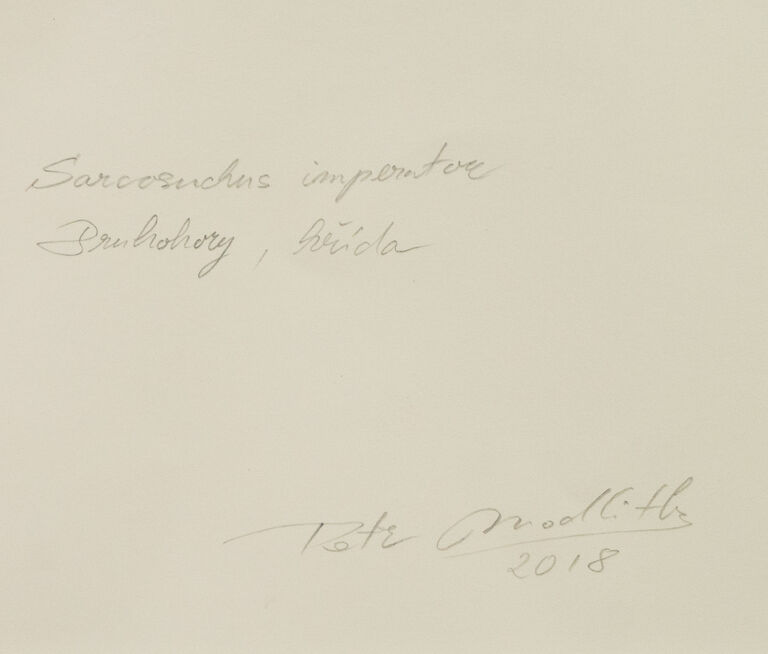 Sarcosuchus imperator
Druhohory, křída
Petr Modlitba
2018